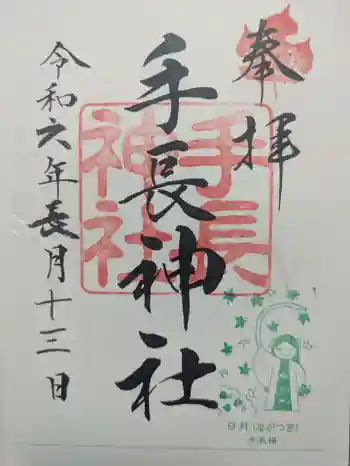 奉拝
手長神社
手長神社
令和六年長月十三日
9月(ながつき)
手長様